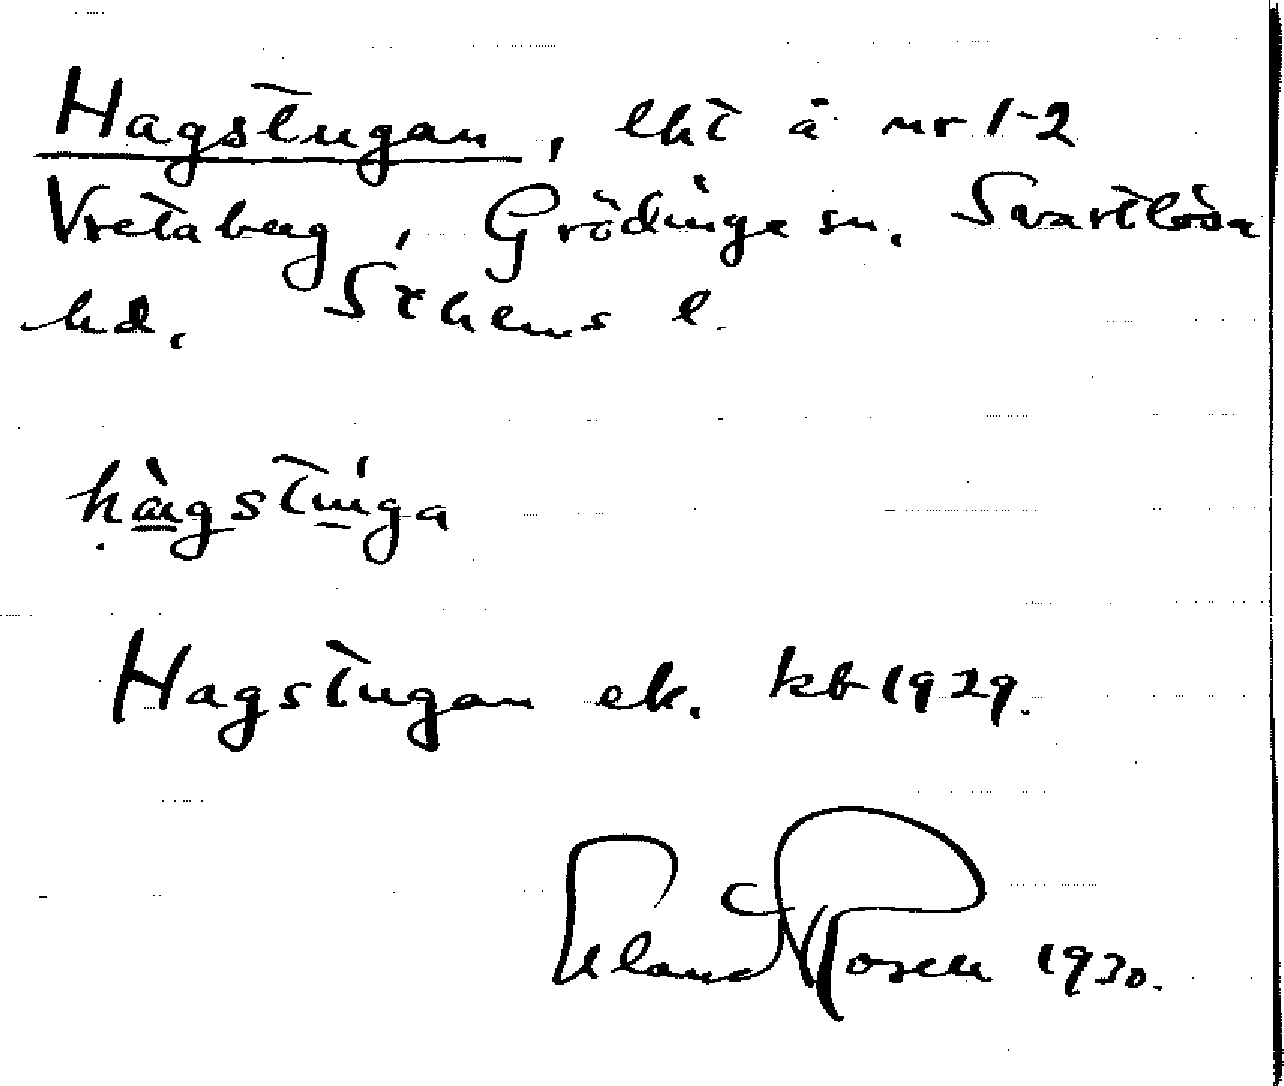 Hagstugan, lht å nr 1-2
Vretaberg, Grödinge sn. Svartlösa
hd. Sthlms l.
hàgstúga
Hagstugan ek. kb 1929.
Erland Rosell 1930.